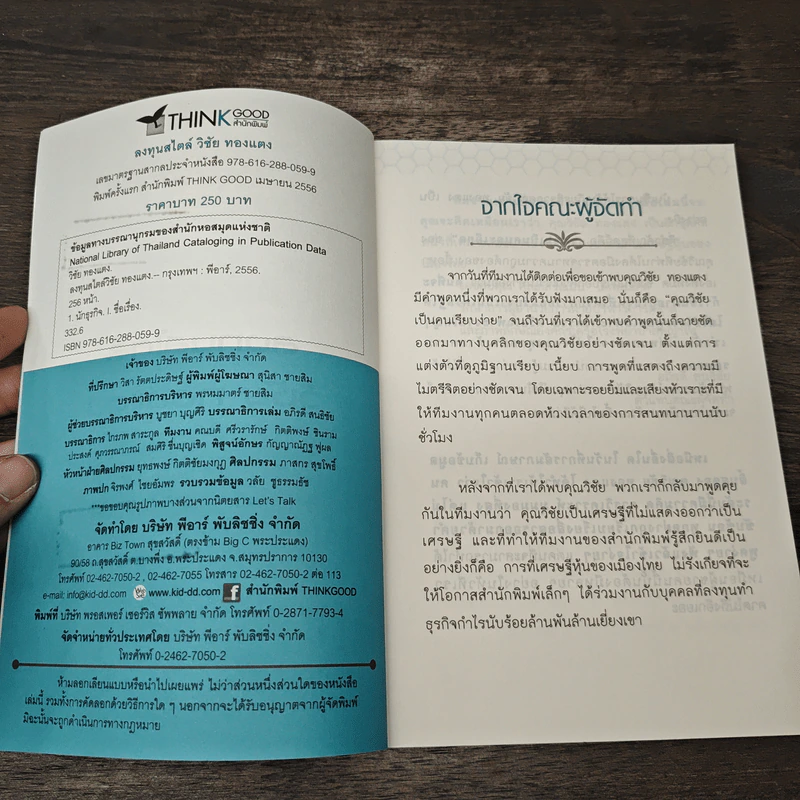 THINK GOOD
สำนักพิมพ์
ลงทุนสไตล์ วิชัย ทองแตง
เลขมาตรฐานสากลประจำหนังสือ 978-616-288-059-9
พิมพ์ครั้งแรก สำนักพิมพ์ THINK GOOD เมษายน 2556
ราคาบาท 250 บาท
ข้อมูลทางบรรณานุกรมของสำนักหอสมุดแห่งชาติ
National Library of Thailand Cataloging in Publication Data
วิชัย ทองแตง.
ลงทุนสไตล์วิชัย ทองแตง.-- กรุงเทพฯ : พีอาร์, 2556.
256 หน้า.
1. นักธุรกิจ. I. ชื่อเรื่อง.
332.6
ISBN 978-616-288-059-9
เจ้าของ บริษัท พีอาร์ พับลิชชิ่ง จำกัด
ที่ปรึกษา วิสา รัตตประดิษฐ์ ผู้พิมพ์ผู้โฆษณา สุนิสา ชายสิม
บรรณาธิการบริหาร พรหมมาตร์ ชายสิม
ผู้ช่วยบรรณาธิการบริหาร บูชยา บุญศิริ บรรณาธิการเล่ม อภิรดี สนธิชัย
บรรณาธิการ ไกรภพ สาระกูล ทีมงาน คณบดี ศรีวรารักษ์ กิตติพงษ์ ชินราม
ประสงค์ ศุภวรรณาภรณ์ สมศิริ ชื่นบุญเชิด พิสูจน์อักษร กัญญาณัฏฐ ฟูผล
หัวหน้าฝ่ายศิลปกรรม ยุทธพงษ์ กิตติชัยมงกุฎ ศิลปกรรม ภาสกร สุขโพธิ์
ภาพปก จิรพงศ์ ไชยอัมพร รวบรวมข้อมูล วลัย ชูธรรมธัช
***ขอขอบคุณรูปภาพบางส่วนจากนิตยสาร Let's Talk
จัดทำโดย บริษัท พีอาร์ พับลิชชิ่ง จำกัด
อาคาร Biz Town สุขสวัสดิ์ (ตรงข้าม Big C พระประแดง)
90/58 ถ.สุขสวัสดิ์ ต.บางพึ่ง อ.พระประแดง จ.สมุทรปราการ 10130
โทรศัพท์ 02-462-7050-2 , 02-462-7055 โทรสาร 02-462-7050-2 ต่อ 113
e-mail: info@kid-dd.com www.kid-dd.com f สำนักพิมพ์ THINKGOOD
พิมพ์ที่ บริษัท พรอสเพอร์ เซอร์วิส ซัพพลาย จำกัด โทรศัพท์ 0-2871-7793-4
จัดจำหน่ายทั่วประเทศโดย บริษัท พีอาร์ พับลิชชิ่ง จำกัด
โทรศัพท์ 0-2462-7050-2
ห้ามลอกเลียนแบบหรือนำไปเผยแพร่ ไม่ว่าส่วนหนึ่งส่วนใดของหนังสือ
เล่มนี้ รวมทั้งการคัดลอกด้วยวิธีการใด ๆ นอกจากจะได้รับอนุญาตจากผู้จัดพิมพ์
มิฉะนั้นจะถูกดำเนินการทางกฎหมาย
จากใจคณะผู้จัดทำ
จากวันที่ทีมงานได้ติดต่อเพื่อขอเข้าพบคุณวิชัย ทองแตง
มีคำพูดหนึ่งที่พวกเราได้รับฟังมาเสมอ นั่นก็คือ "คุณวิชัย
เป็นคนเรียบง่าย" จนถึงวันที่เราได้เข้าพบคำพูดนั้นก็ฉายชัด
ออกมาทางบุคลิกของคุณวิชัยอย่างชัดเจน ตั้งแต่การ
แต่งตัวที่ดูภูมิฐานเรียบ เนี้ยบ การพูดที่แสดงถึงความมี
ไมตรีจิตอย่างชัดเจน โดยเฉพาะรอยยิ้มและเสียงหัวเราะที่มี
ให้ทีมงานทุกคนตลอดห้วงเวลาของการสนทนานานนับ
ชั่วโมง
หลังจากที่เราได้พบคุณวิชัย พวกเราก็กลับมาพูดคุย
กันในทีมงานว่า คุณวิชัยเป็นเศรษฐีที่ไม่แสดงออกว่าเป็น
เศรษฐี และที่ทำให้ทีมงานของสำนักพิมพ์รู้สึกยินดีเป็น
อย่างยิ่งก็คือ การที่เศรษฐีหุ้นของเมืองไทย ไม่รังเกียจที่จะ
ให้โอกาสสำนักพิมพ์เล็กๆ ได้ร่วมงานกับบุคคลที่ลงทุนทำ
ธุรกิจกำไรนับร้อยล้านพันล้านเยี่ยงเขา